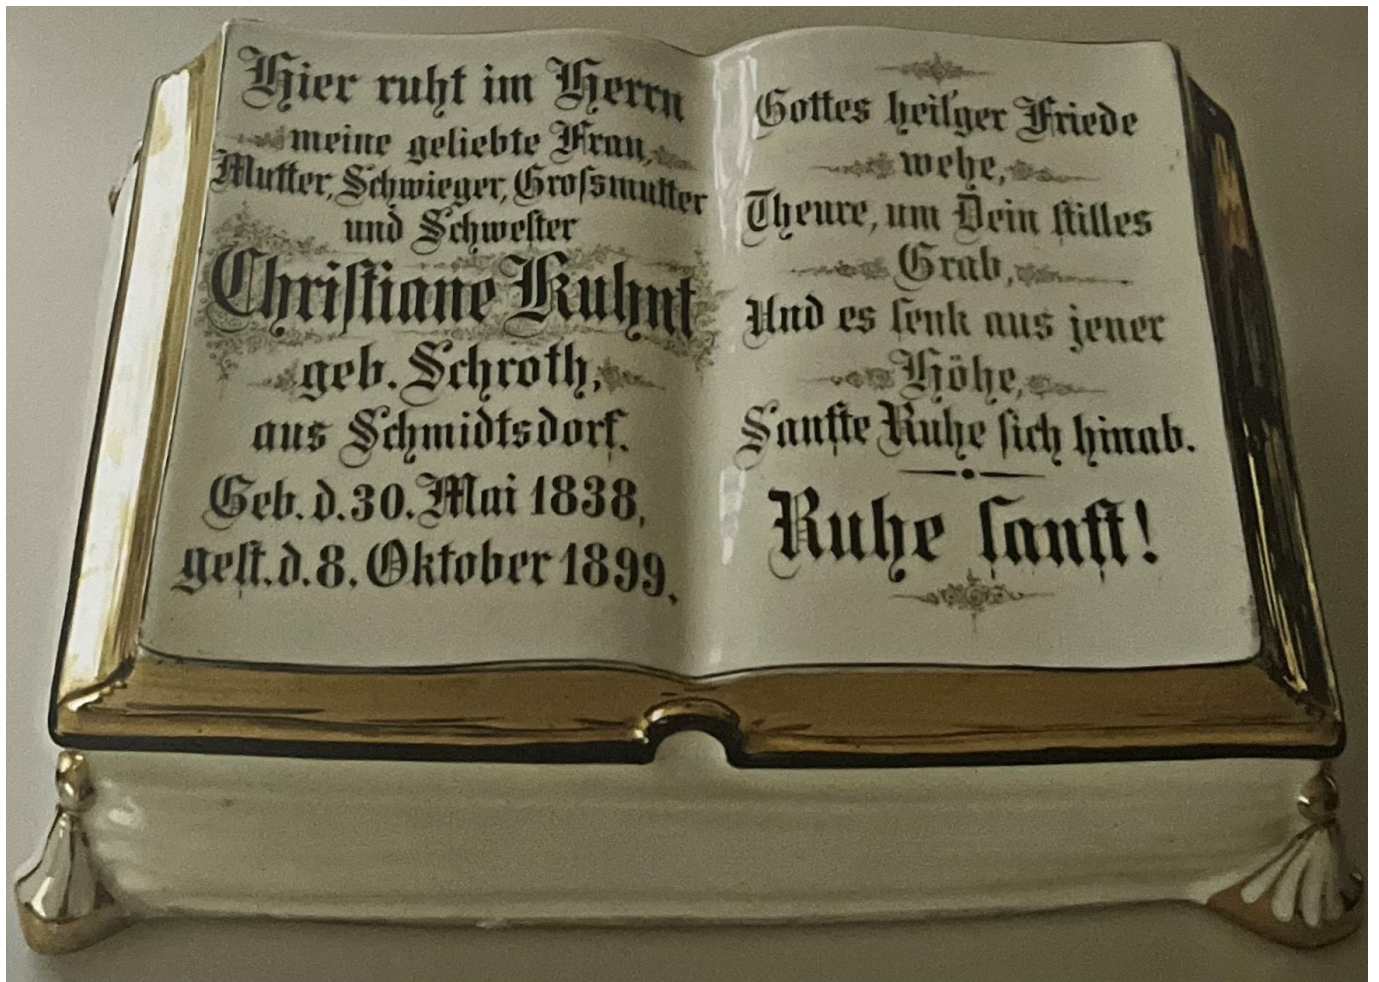 Hier ruht im Herrn
meine geliebte Frau,
Mutter, Schwieger, Großmutter
und Schwester
Christiane Kuhnt
geb. Schroth,
aus Schmidtsdorf.
Geb. d. 30. Mai 1838,
gest. d. 8. Oktober 1899.
Gottes heil'ger Friede
wehe,
Theure, um Dein stilles
Grab,
Und es senk aus jener
Höhe,
Sanfte Ruhe sich hinab.
Ruhe sanft!